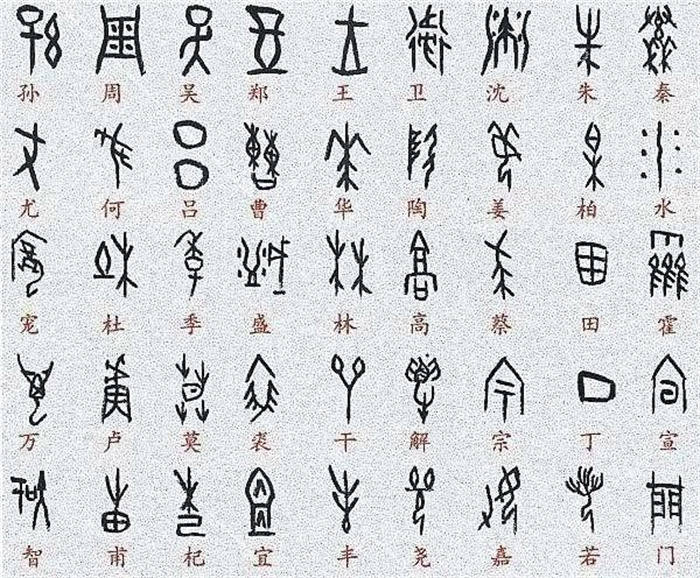 孙 周 吴 郑 王 卫 沈 朱 秦
尤 何 吕 曹 华 陶 姜 柏 水
宠 杜 季 盛 林 高 蔡 田 霍
万 卢 莫 裘 干 解 宗 丁 宣
智 甫 杞 宜 丰 尧 嘉 若 门